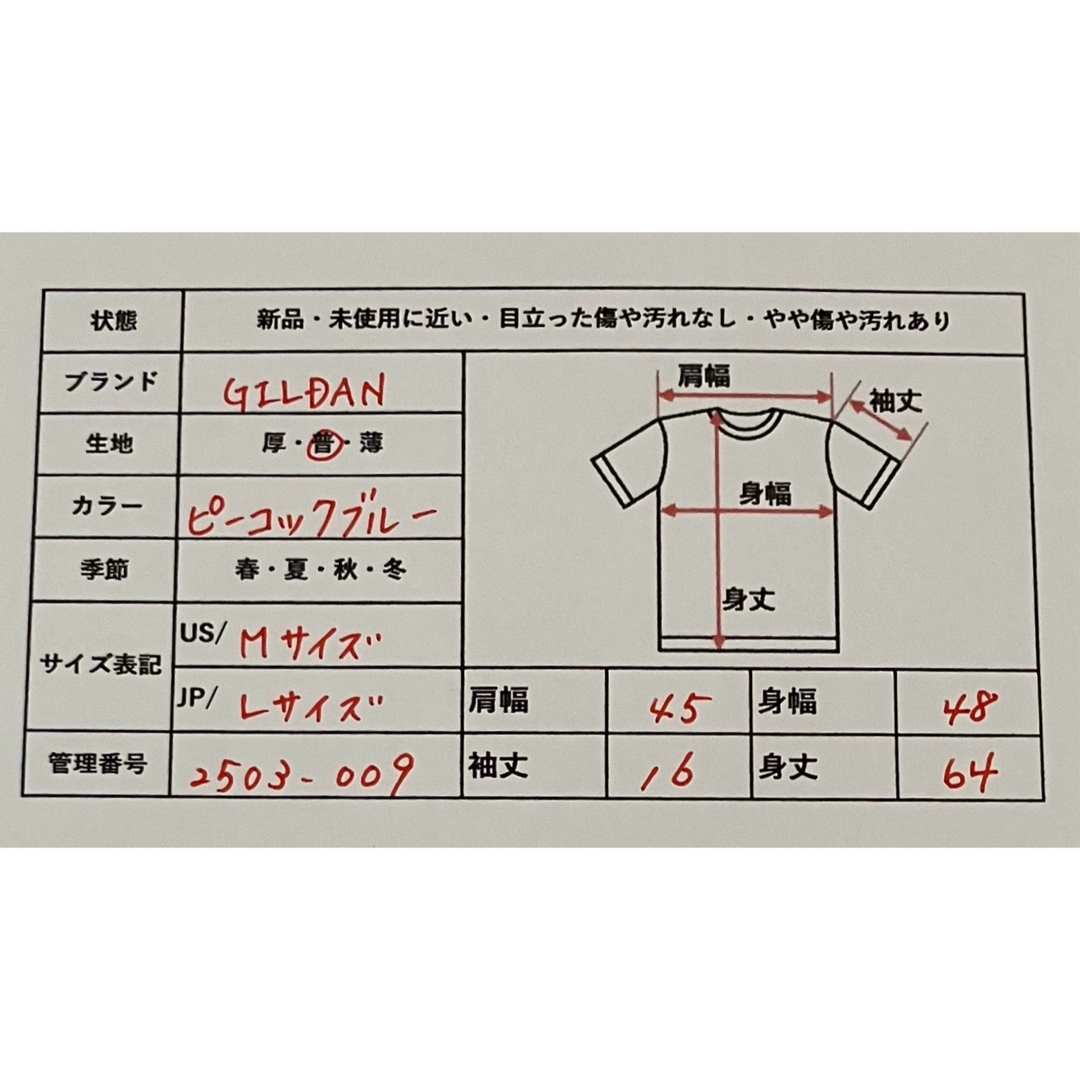 状態 新品・未使用に近い・目立った傷や汚れなし・やや傷や汚れあり
ブランド GILDAN
生地 厚・普・薄
カラー ピーコックブルー
季節 春・夏・秋・冬
サイズ表記
US/ Mサイズ
JP/ Lサイズ
管理番号 2503-009
肩幅
袖丈
身幅
身丈
肩幅 45 身幅 48
袖丈 16 身丈 64